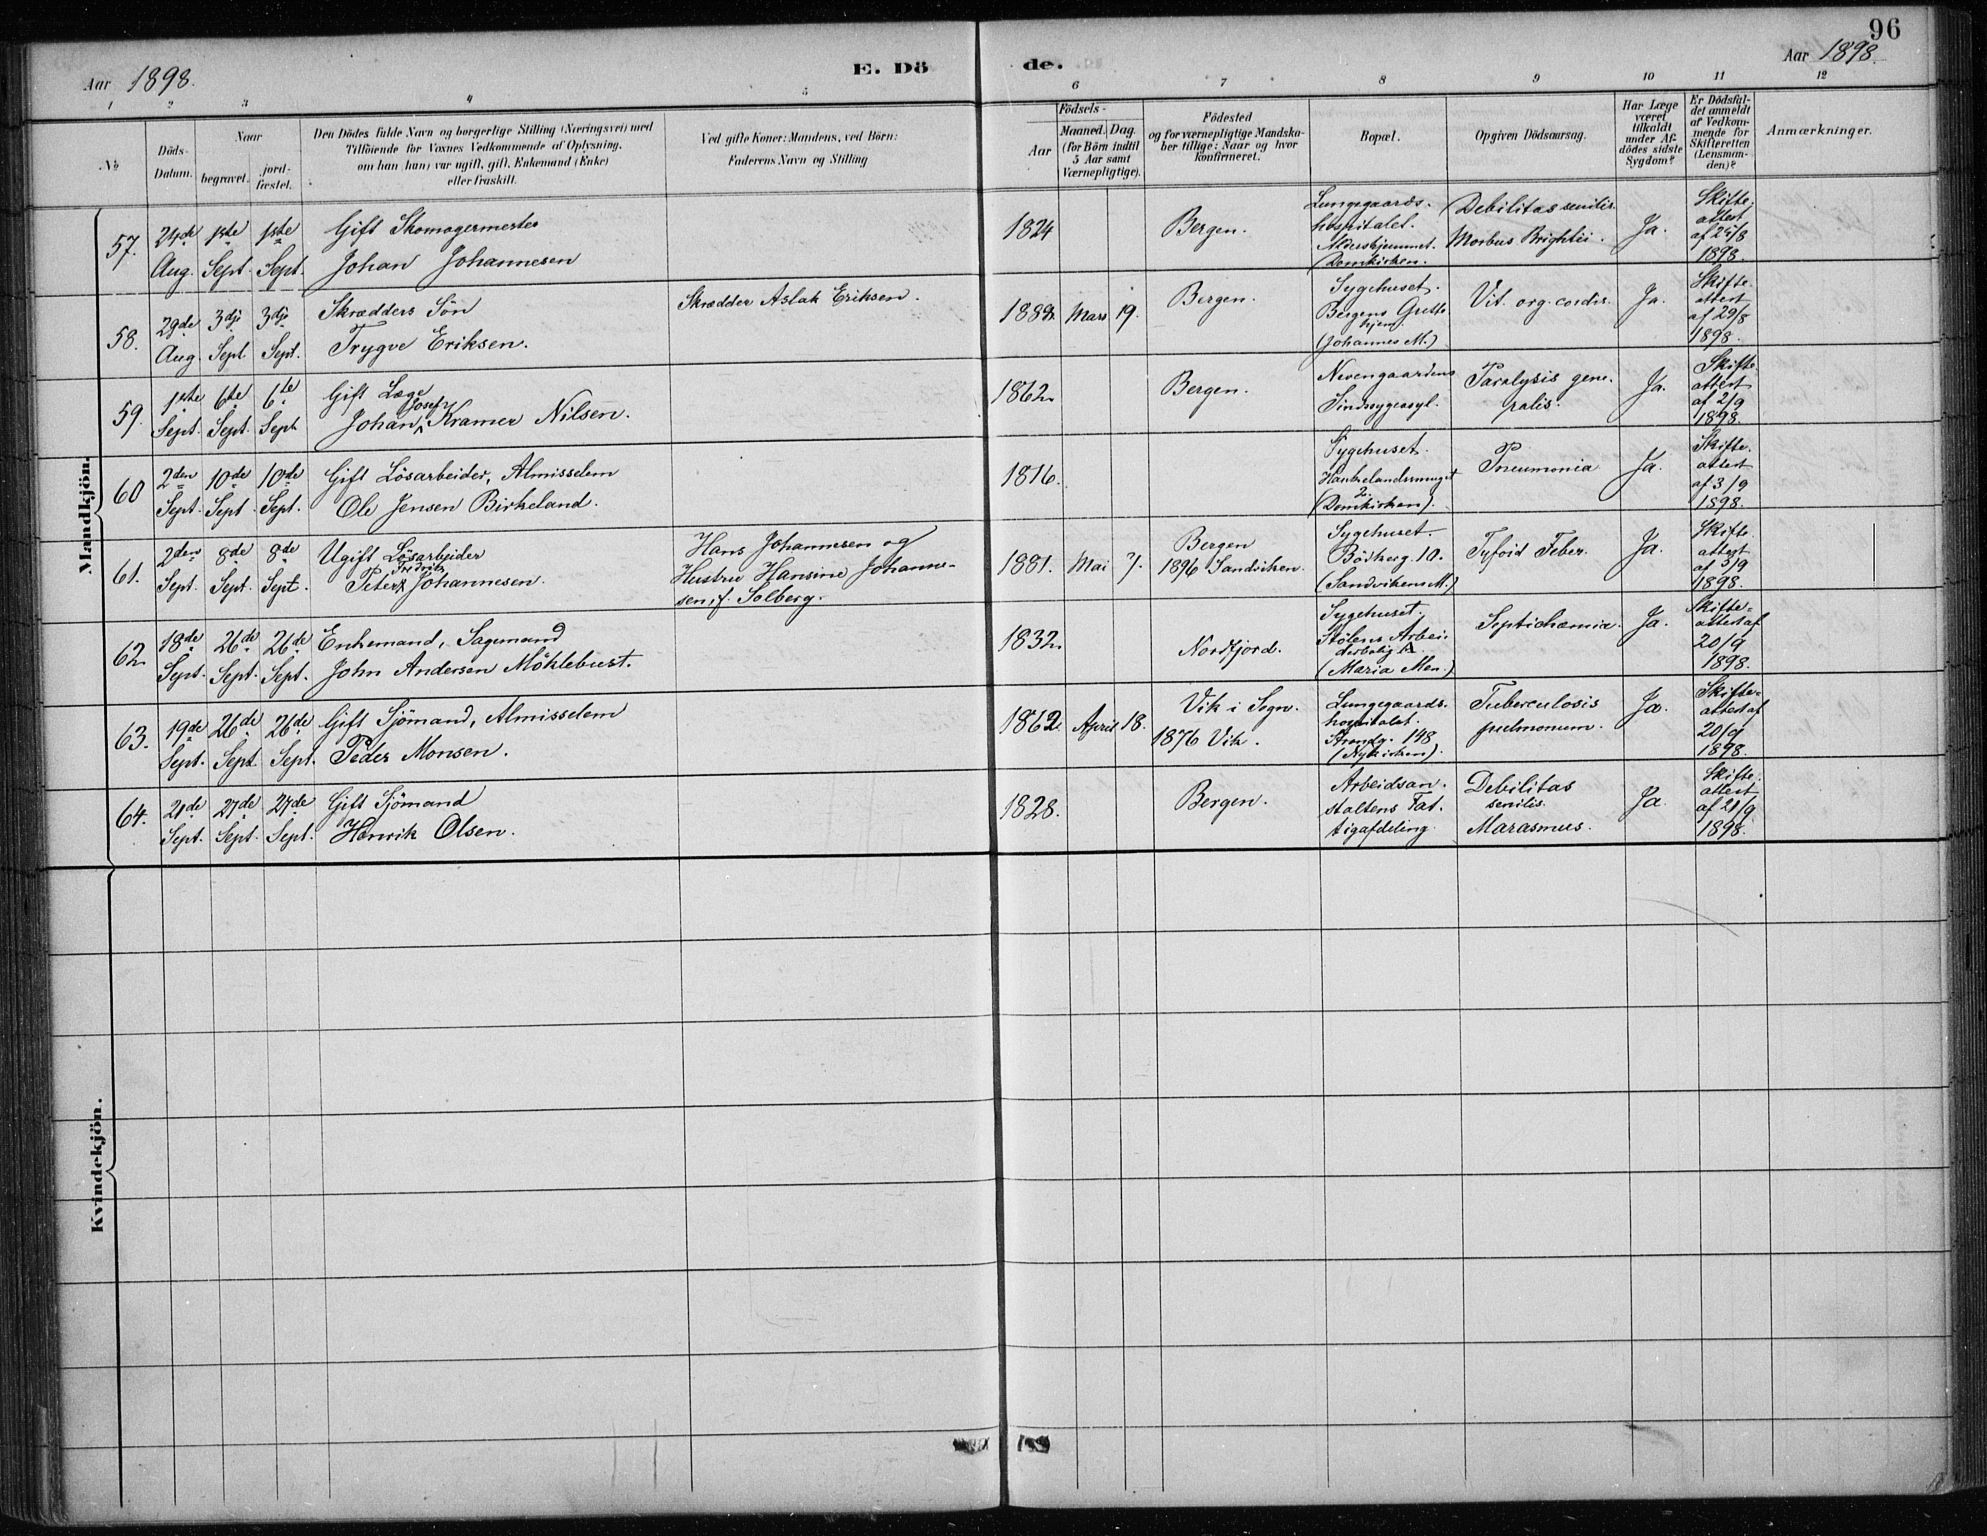 96
Aar 1898.
E. Dö
de.
Aar 1898.
1 2 3 4 5 6 7 8 9 10 11 12
No
Döds-
Datum.
Naar
begravet.
jord-
fæstet.
Den Dödes fulde Navn og borgerlige Stilling (Næringsvei) med
Tilföiende for Voxnes Vedkommende af Oplysning,
om han (hun) var ugift, gift, Enkemand (Enke)
eller fraskilt.
Ved gifte Koner: Mandens, ved Börn:
Faderens Navn og Stilling
Födsels-
Aar
Maaned. Dag.
(for Börn indtil
5 Aar samt
Værnepligtige).
Födested
og for værnepligtige Mandska-
ber tillige: Naar og hvor
konfirmeret.
Bopæl.
Opgiven Dödsaarsag.
Har Læge
været
tilkaldt
under Af-
dödes sidste
Sygdom?
Er Dödsfal-
det anmeldt
af Vedkom-
mende for
Skifteretten
(Lensman-
den)?
Anmærkninger.
Mandkjön.
57.
24de
Aug.
1ste
Sept.
1ste
Sept.
Gift Skomagermester
Johan Johannesen
1824
Bergen.
Lungegaards-
hospitalet.
Aldershjemmet.
(Domkirken.
Debilitas senilis
Morbus Brightii.
Ja.
Skifte-
attest
1898.
58.
29de
Aug.
3dje
Sept
3dje
Sept.
Skrædders Sön
Trygve Eriksen.
Skrædder Aslak Eriksen.
Mars 19.
Bergen.
Sygehuset.
Bergens Gutte
hjem
(Johannes M.)
Vit. org. cordis.
Ja.
Skifte-
attest
af 29/8
1898.
59.
1ste
Sept.
6te
Sept.
6te
Sept
Gift Læge
Josef
Johan Kramer Nilsen.
1862.
Bergen.
Nevengaardens
Sindssygeasyl.
Paralysis gene-
ralis.
Ja.
Skifte-
attest
af 2/9
1898.
60
2den
Sept.
10de
Sept
10de
Sept.
Gift Lösarbeider, Almisselem
Ole Jensen Birkeland.
1816.
Sygehuset.
Haukelandssmuget
2.
(Domkirken).
Pneumonia
Ja.
Skifte-
attest
af 3/9
1898.
61.
2den
Sept.
8de
Sept.
8de
Sept.
Ugift Lösarbeider
Fredrik
Peter Johannesen.
Hans Johannesen og
Hustru Hansine Johanne-
sen, f. Solberg.
1881. Mai 7.
Bergen
1896 Sandviken.
Sygehuset.
Bödkerg. 10.
(Sandvikens M.)
Tyfoid Feber.
Ja.
Skifte-
attest
af 5/9
1898.
62.
18de
Sept.
26de
Sept.
26de
Sept.
Enkemand, Sagmand
John Andersen Möklebust.
1832.
Nordfjord.
Sygehuset.
Stölens Arbei-
derbolig
(Maria Men.)
Septichæmia.
Ja.
Skifte-
attest af
20/9
1898.
63.
19de
Sept.
26de
Sept.
26de
Sept.
Gift Sjömand, Almisselem
Peder Monsen.
1862. April 18.
Vik i Sogn.
1876 Vik.
Lungegaards-
hospitalet.
Strandg. 148
(Nykirken).
Tuberculosis
pulmonum.
Ja.
Skifte-
attest af
20/9
1898.
64.
21de
Sept.
27de
Sept.
27de
Sept.
Gift Sjömand
Henrik Olsen.
1828.
Bergen.
Arbeidsan-
staltens Fat-
tigafdeling.
Debilitas
senilis.
Marasmus.
Ja.
Skifte-
attest
af 21/9
1898.
Kvindekjön.